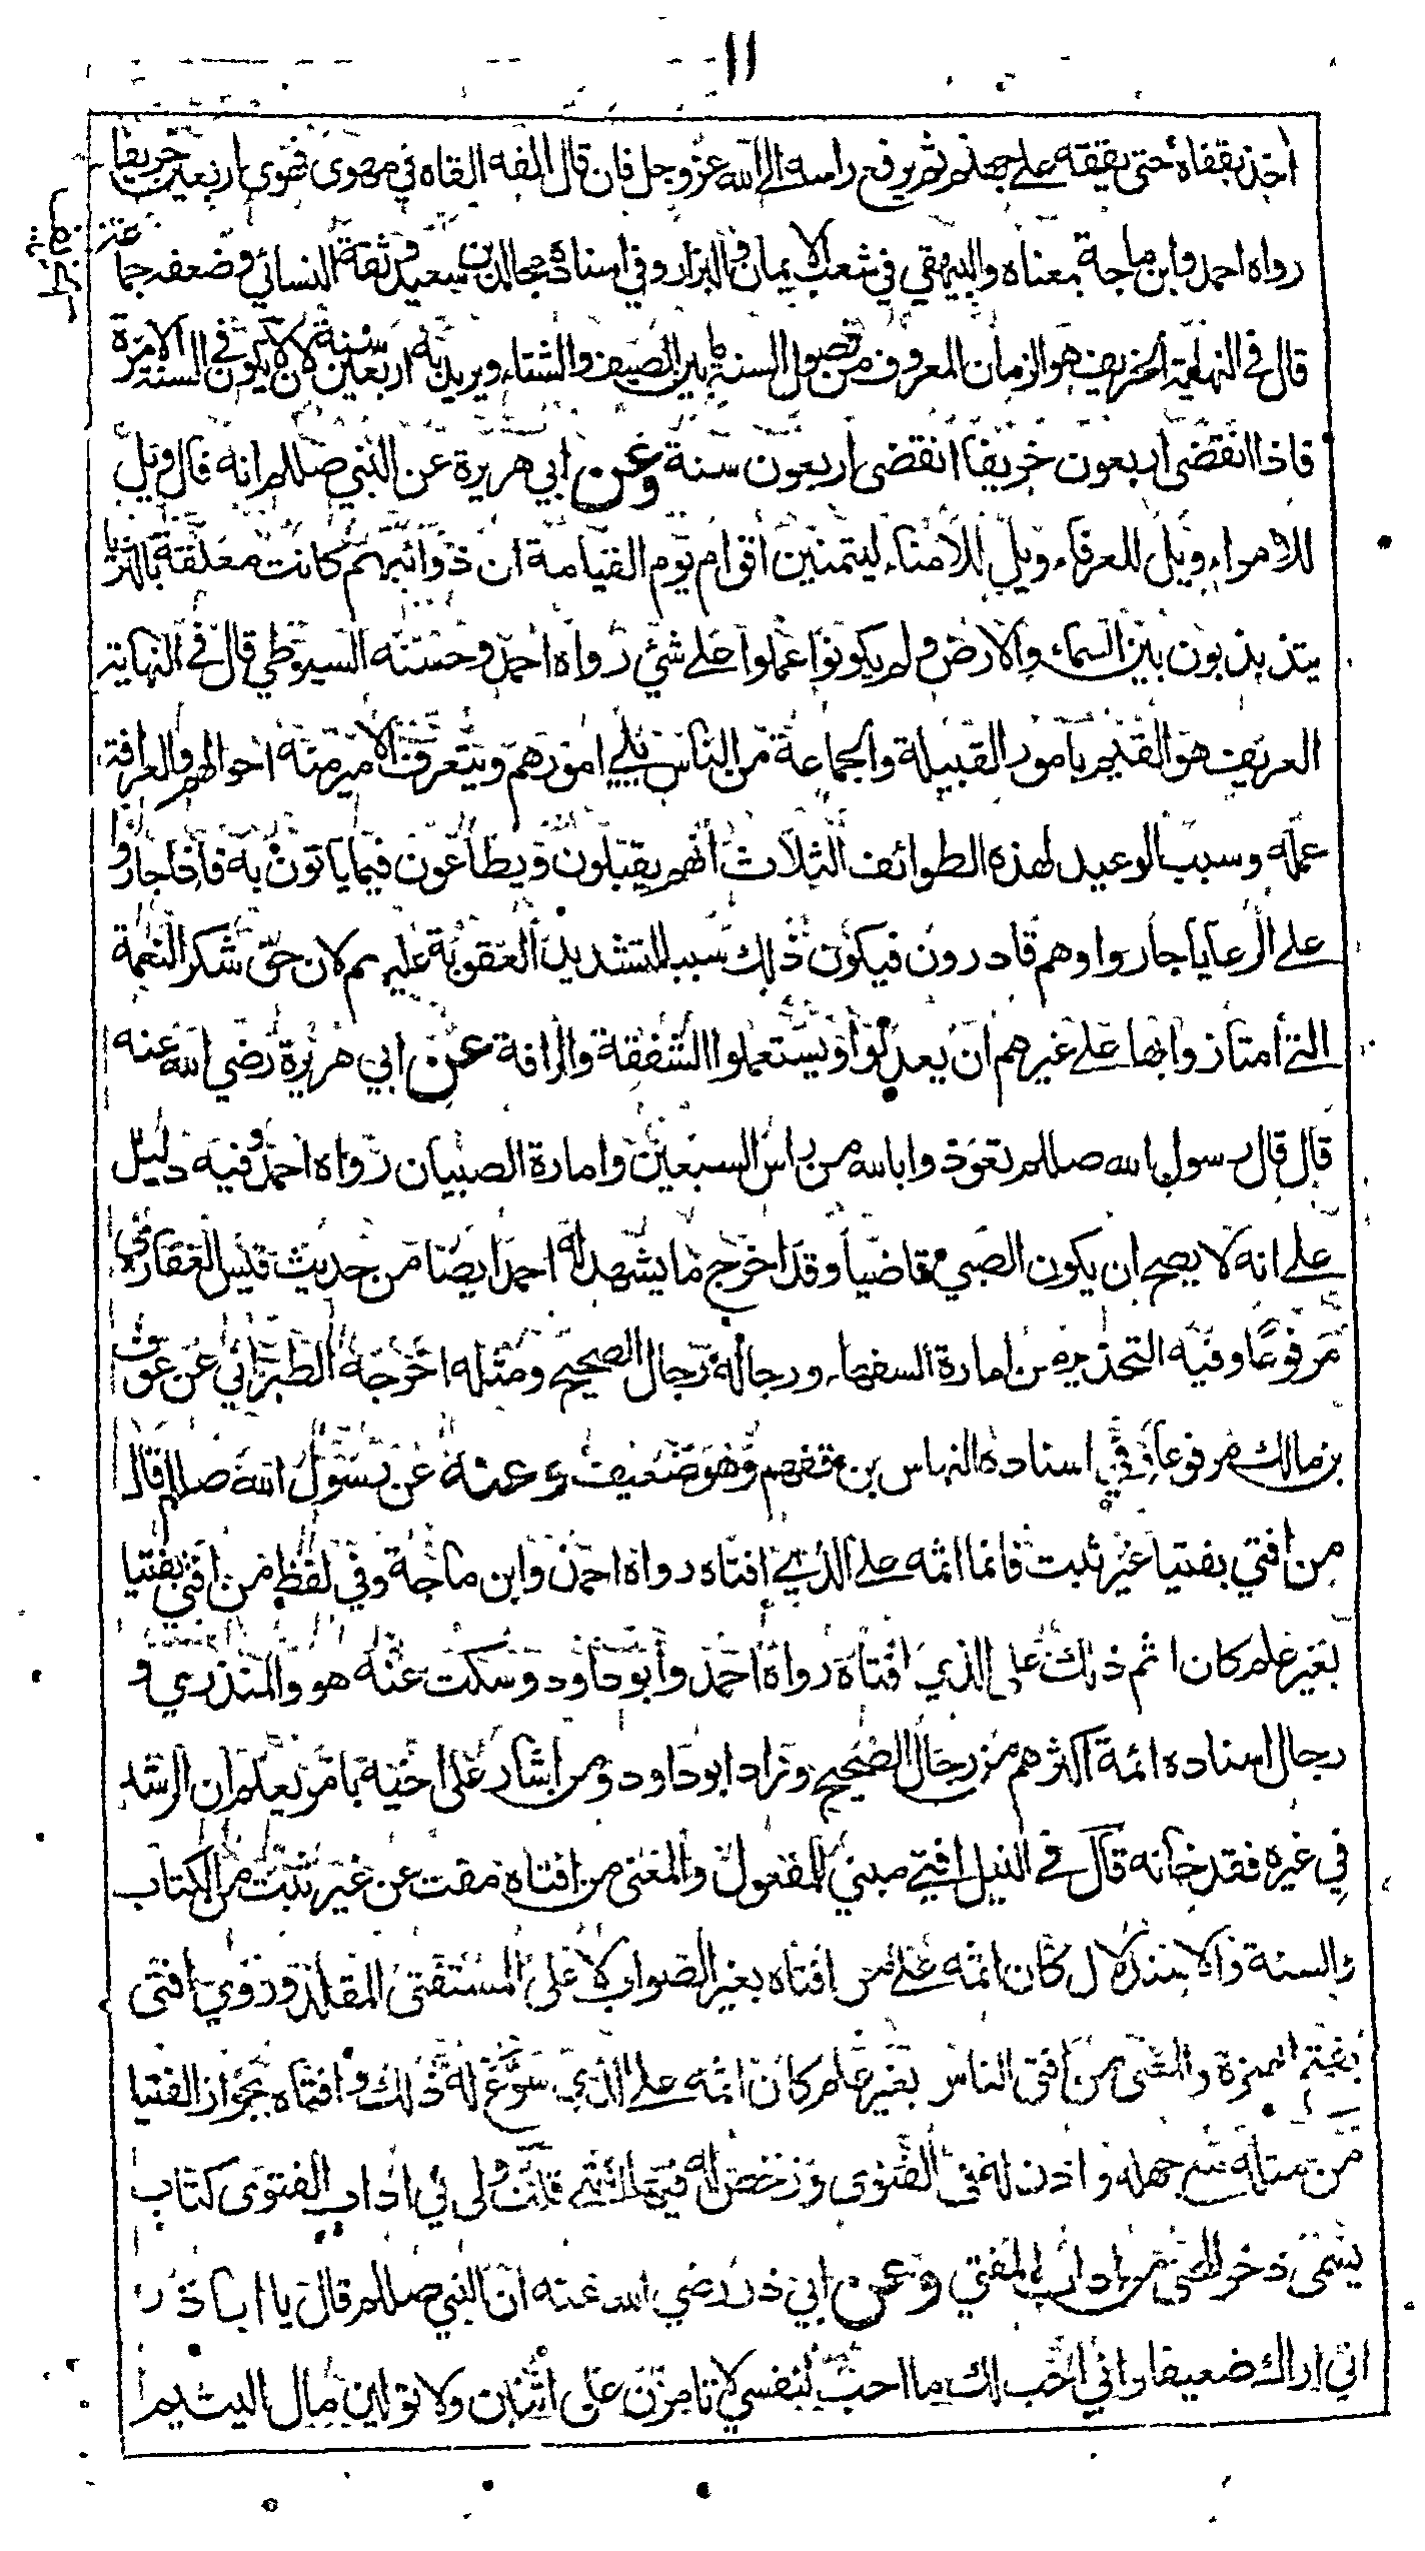 ١١
اخذ بقفاه حتى يقفه على جهنم ثم يرفع راسه الى الله عز وجل فان قال القه القاه في مهوى فهوى اربعين خريفا
رواه احمد وابن ماجة بمعناه والبيهقي في شعب الايمان والبزار وفي اسناده مجالد بن سعيد وثقه النسائي وضعفه جما
قال في النهاية الخريف هو الزمان المعروف من فصول السنة ما بين الصيف والشتاء ويريد به اربعين سنة لان لا يكون في السنة الا مرة
فاذا انقضى اربعون خريفا انقضى اربعون سنة وعن ابي هريرة عن النبي صللم انه قال ويل
للامراء ويل للعرفاء ويل للامناء ليتمنين اقوام يوم القيامة ان ذوائبهم كانت معلقة بالثريا
يتذبذبون بين السماء والارض ولم يكونوا عملوا على شئ رواه احمد وحسنه السيوطي قال في النهاية
العريف هو القيم بامور القبيلة والجماعة من الناس يلي امورهم ويتعرف الامير منه احوالهم والعرافة
عمله وسبب الوعيد لهذه الطوائف الثلاث انهم يقبلون ويطاعون فيما ياتون به فاذا جاروا
على الرعايا جاروا وهم قادرون فيكون ذلك سببا لتشديد العقوبة عليهم لان حق شكر النعمة
التي امتازوا بها على غيرهم ان يعدلوا ويستعملوا الشفقة والرافة عن ابي هريرة رضي الله عنه
قال قال رسول الله صللم تعوذوا بالله من راس السبعين وامارة الصبيان رواه احمد وفيه دليل
على انه لا يصح ان يكون الصبي قاضيا وقد اخرج ما يشهد له احمد ايضا من حديث قيس الغفاري
مرفوعا وفيه التحذير من امارة السفهاء ورجاله رجال الصحيح ومثله اخرجه الطبراني عن عوف
بن مالك مرفوعا وفي اسناده النهاس بن قهم وهو ضعيف وعنه عن رسول الله صللم قال
من افتي بفتيا غير ثبت فانما اثمه على الذي افتاه رواه احمد وابن ماجة وفي لفظ من افتي بفتيا
بغير علم كان اثم ذلك على الذي افتاه رواه احمد وابو داود وسكت عنه هو والمنذري و
رجال اسناده ائمة اكثرهم من رجال الصحيح وزاد ابو داود ومن اشار على اخيه بامر يعلم ان الرشد
في غيره فقد خانه قال في النيل افتي مبني للمفعول والمعنى من افتاه مفت عن غير ثبت من الكتاب
والسنة والاستدلال كان اثمه على من افتاه بغير الصواب لا على المستفتى المقلد وروي افتى
بفتح الهمزة والمعنى من افتى الناس بغير علم كان اثمه على الذي سوغ له ذلك وافتاه بجواز الفتيا
من مثله مع جهله واذن له في الفتوى ورخص له فيها انتهى قلت ولي في اداب الفتوى كتاب
يسمى ذخر المحتي من اداب المفتي وعن ابي ذر رضي الله عنه ان النبي صللم قال يا ابا ذر
اني اراك ضعيفا واني احب لك ما احب لنفسي لا تامرن على اثنين ولا تولين مال اليتيم